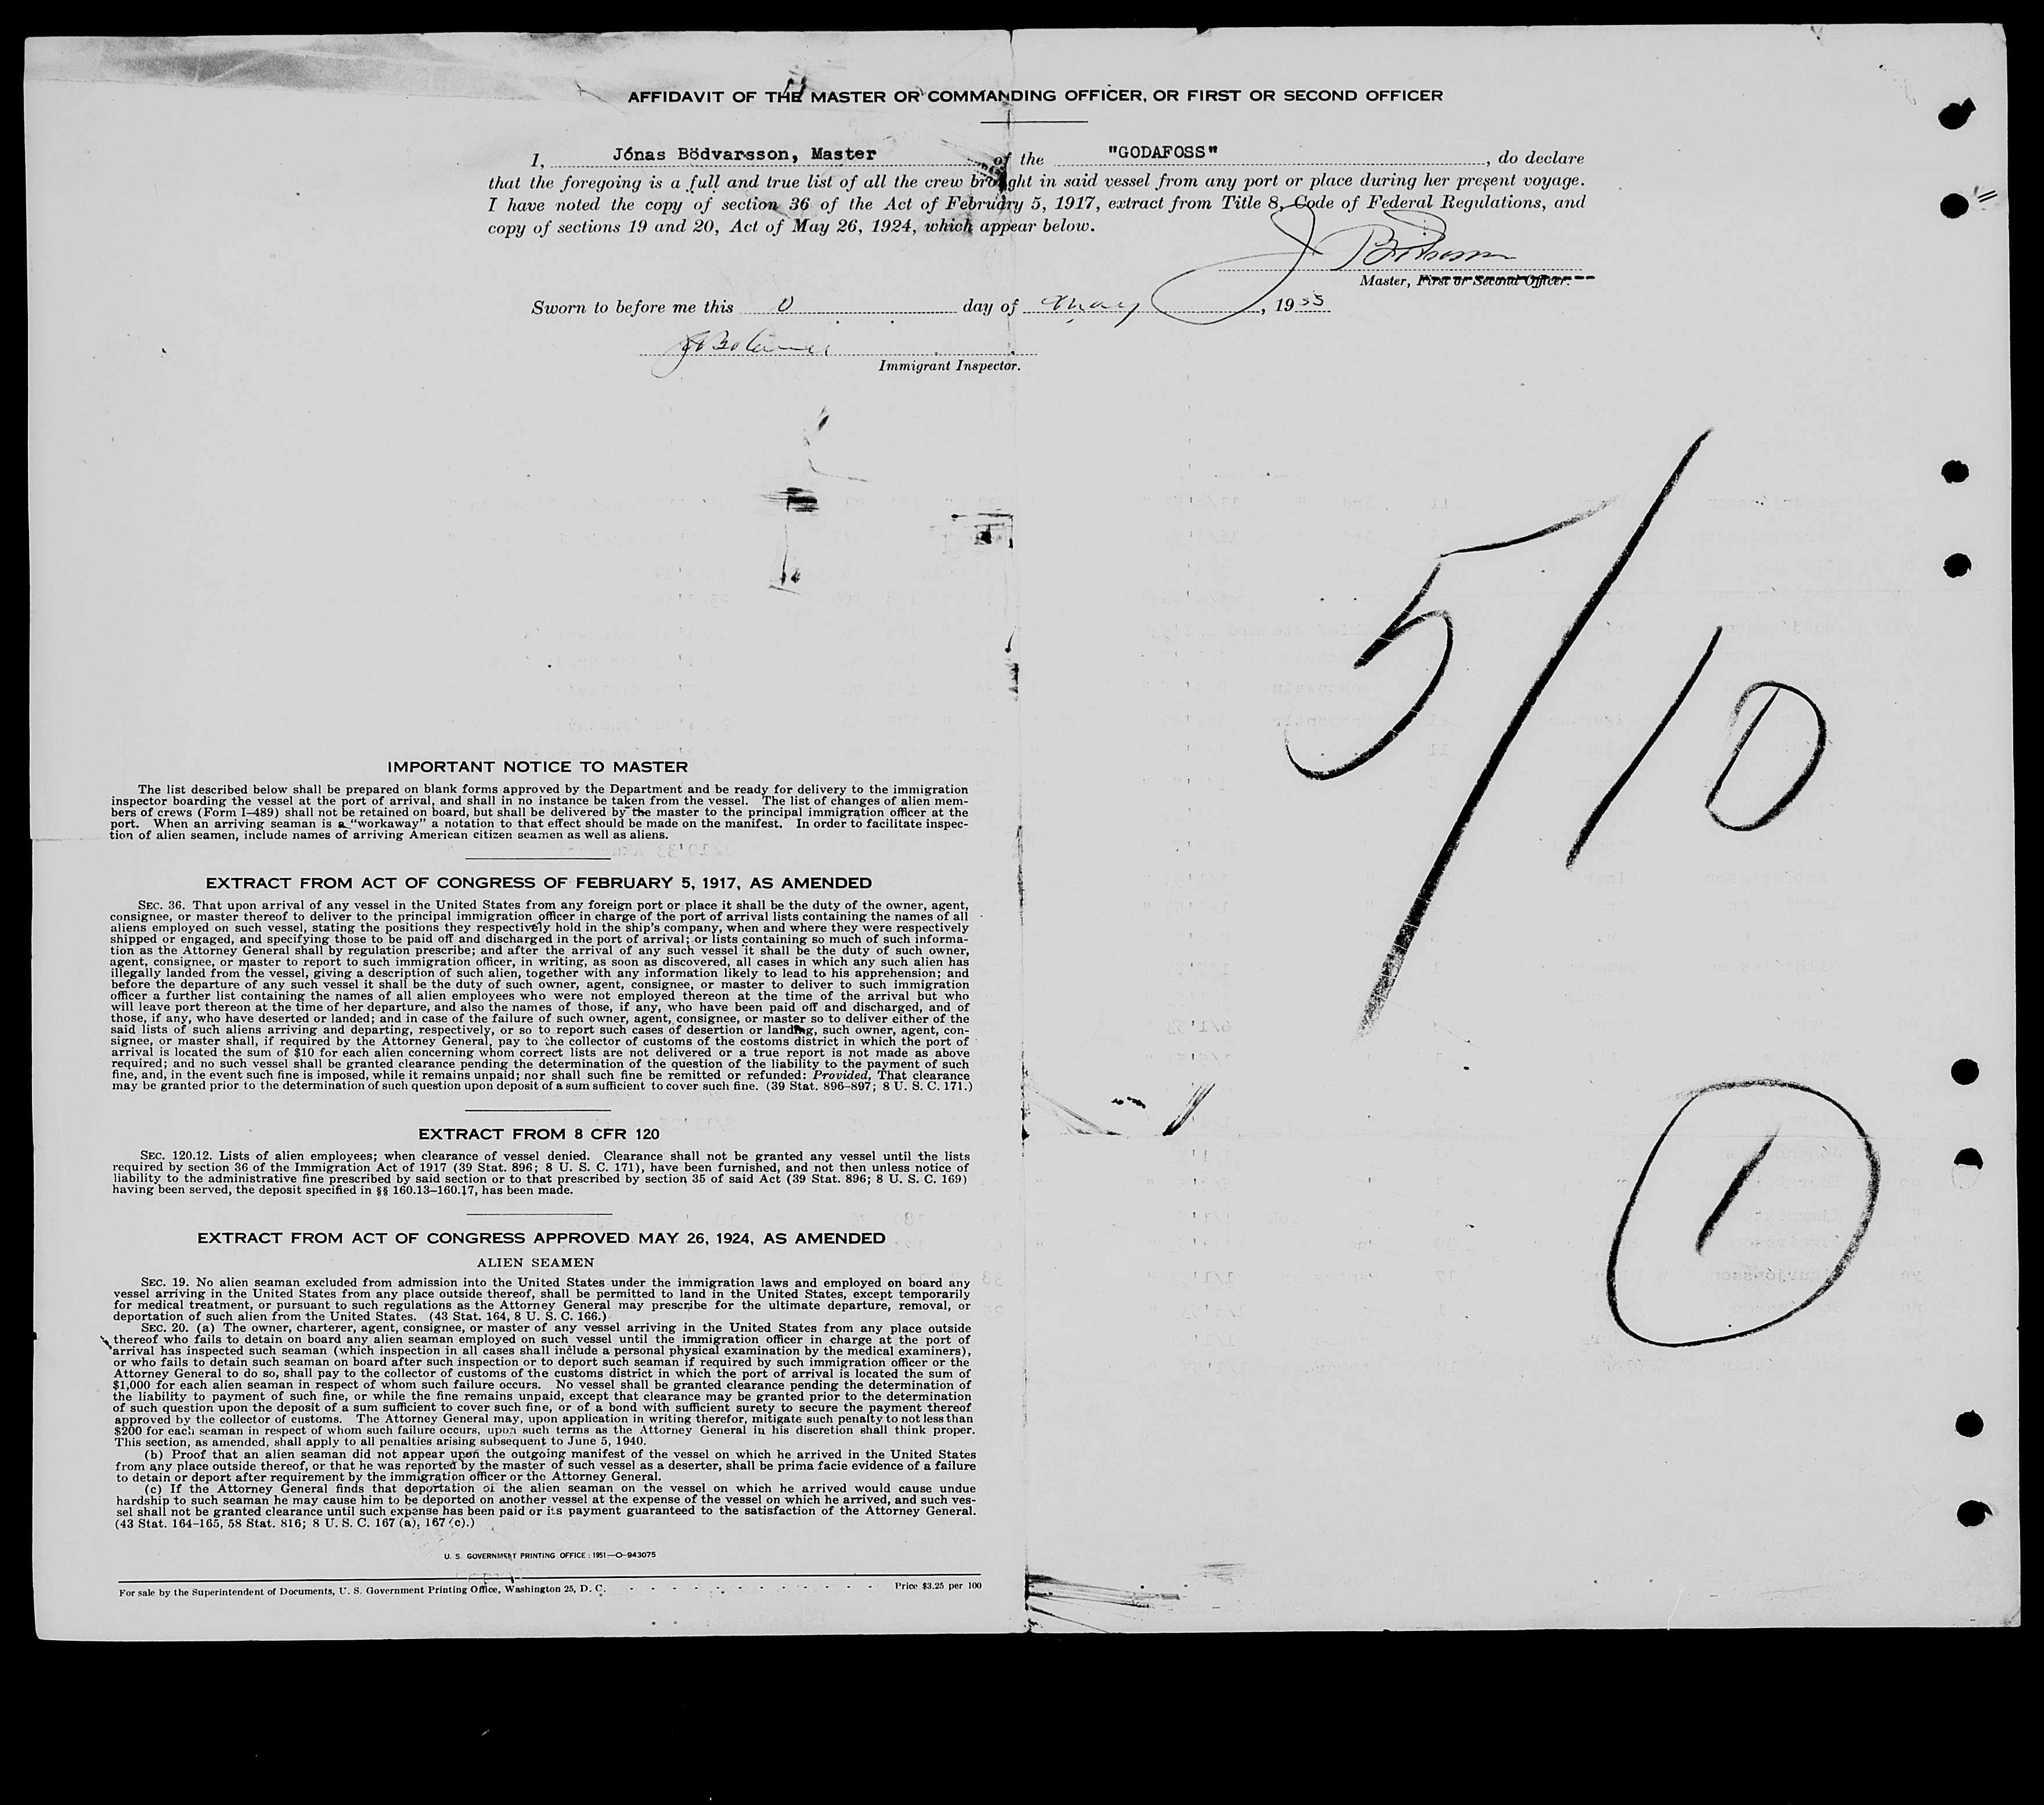 AFFIDAVIT OF THE MASTER OR COMMANDING OFFICER, OR FIRST OR SECOND OFFICER
I, Jónas Bödvarsson, Master of the "GODAFOSS", do declare
that the foregoing is a full and true list of all the crew brought in said vessel from any port or place during her present voyage.
I have noted the copy of section 36 of the Act of February 5, 1917, extract from Title 8, Code of Federal Regulations, and
copy of sections 19 and 20, Act of May 26, 1924, which appear below.
Master, First or Second Officer.
Sworn to before me this day of May, 1955
Immigrant Inspector.
5/10
1
IMPORTANT NOTICE TO MASTER
The list described below shall be prepared on blank forms approved by the Department and be ready for delivery to the immigration
inspector boarding the vessel at the port of arrival, and shall in no instance be taken from the vessel. The list of changes of alien mem-
bers of crews (Form I-489) shall not be retained on board, but shall be delivered by the master to the principal immigration officer at the
port. When an arriving seaman is a "workaway" a notation to that effect should be made on the manifest. In order to facilitate inspec-
tion of alien seamen, include names of arriving American citizen seamen as well as aliens.
EXTRACT FROM ACT OF CONGRESS OF FEBRUARY 5, 1917, AS AMENDED
SEC. 36. That upon arrival of any vessel in the United States from any foreign port or place it shall be the duty of the owner, agent,
consignee, or master thereof to deliver to the principal immigration officer in charge of the port of arrival lists containing the names of all
aliens employed on such vessel, stating the positions they respectively hold in the ship's company, when and where they were respectively
shipped or engaged, and specifying those to be paid off and discharged in the port of arrival; or lists containing so much of such informa-
tion as the Attorney General shall by regulation prescribe; and after the arrival of any such vessel it shall be the duty of such owner,
agent, consignee, or master to report to such immigration officer, in writing, as soon as discovered, all cases in which any such alien has
illegally landed from the vessel, giving a description of such alien, together with any information likely to lead to his apprehension; and
before the departure of any such vessel it shall be the duty of such owner, agent, consignee, or master to deliver to such immigration
officer a further list containing the names of all alien employees who were not employed thereon at the time of the arrival but who
will leave port thereon at the time of her departure, and also the names of those, if any, who have been paid off and discharged, and of
those, if any, who have deserted or landed; and in case of the failure of such owner, agent, consignee, or master so to deliver either of the
said lists of such aliens arriving and departing, respectively, or so to report such cases of desertion or landing, such owner, agent, con-
signee, or master shall, if required by the Attorney General, pay to the collector of customs of the costoms district in which the port of
arrival is located the sum of $10 for each alien concerning whom correct lists are not delivered or a true report is not made as above
required; and no such vessel shall be granted clearance pending the determination of the question of the liability to the payment of such
fine, and, in the event such fine is imposed, while it remains unpaid; nor shall such fine be remitted or refunded: Provided, That clearance
may be granted prior to the determination of such question upon deposit of a sum sufficient to cover such fine. (39 Stat. 896-897; 8 U. S. C. 171.)
EXTRACT FROM 8 CFR 120
SEC. 120.12. Lists of alien employees; when clearance of vessel denied. Clearance shall not be granted any vessel until the lists
required by section 36 of the Immigration Act of 1917 (39 Stat. 896; 8 U. S. C. 171), have been furnished, and not then unless notice of
liability to the administrative fine prescribed by said section or to that prescribed by section 35 of said Act (39 Stat. 896; 8 U. S. C. 169)
having been served, the deposit specified in §§ 160.13-160.17, has been made.
EXTRACT FROM ACT OF CONGRESS APPROVED MAY 26, 1924, AS AMENDED
ALIEN SEAMEN
SEC. 19. No alien seaman excluded from admission into the United States under the immigration laws and employed on board any
vessel arriving in the United States from any place outside thereof, shall be permitted to land in the United States, except temporarily
for medical treatment, or pursuant to such regulations as the Attorney General may prescribe for the ultimate departure, removal, or
deportation of such alien from the United States. (43 Stat. 164, 8 U. S. C. 166.)
SEC. 20. (a) The owner, charterer, agent, consignee, or master of any vessel arriving in the United States from any place outside
thereof who fails to detain on board any alien seaman employed on such vessel until the immigration officer in charge at the port of
arrival has inspected such seaman (which inspection in all cases shall include a personal physical examination by the medical examiners),
or who fails to detain such seaman on board after such inspection or to deport such seaman if required by such immigration officer or the
Attorney General to do so, shall pay to the collector of customs of the customs district in which the port of arrival is located the sum of
$1,000 for each alien seaman in respect of whom such failure occurs. No vessel shall be granted clearance pending the determination of
the liability to payment of such fine, or while the fine remains unpaid, except that clearance may be granted prior to the determination
of such question upon the deposit of a sum sufficient to cover such fine, or of a bond with sufficient surety to secure the payment thereof
approved by the collector of customs. The Attorney General may, upon application in writing therefor, mitigate such penalty to not less than
$200 for each seaman in respect of whom such failure occurs, upon such terms as the Attorney General in his discretion shall think proper.
This section, as amended, shall apply to all penalties arising subsequent to June 5, 1940.
(b) Proof that an alien seaman did not appear upon the outgoing manifest of the vessel on which he arrived in the United States
from any place outside thereof, or that he was reported by the master of such vessel as a deserter, shall be prima facie evidence of a failure
to detain or deport after requirement by the immigration officer or the Attorney General.
(c) If the Attorney General finds that deportation of the alien seaman on the vessel on which he arrived would cause undue
hardship to such seaman he may cause him to be deported on another vessel at the expense of the vessel on which he arrived, and such ves-
sel shall not be granted clearance until such expense has been paid or its payment guaranteed to the satisfaction of the Attorney General.
(43 Stat. 164-165, 58 Stat. 816; 8 U. S. C. 167 (a), 167 (c).)
U. S. GOVERNMENT PRINTING OFFICE : 1951—O-943075
For sale by the Superintendent of Documents, U. S. Government Printing Office, Washington 25, D. C. - - - - - - - - - - - - - Price $3.25 per 100